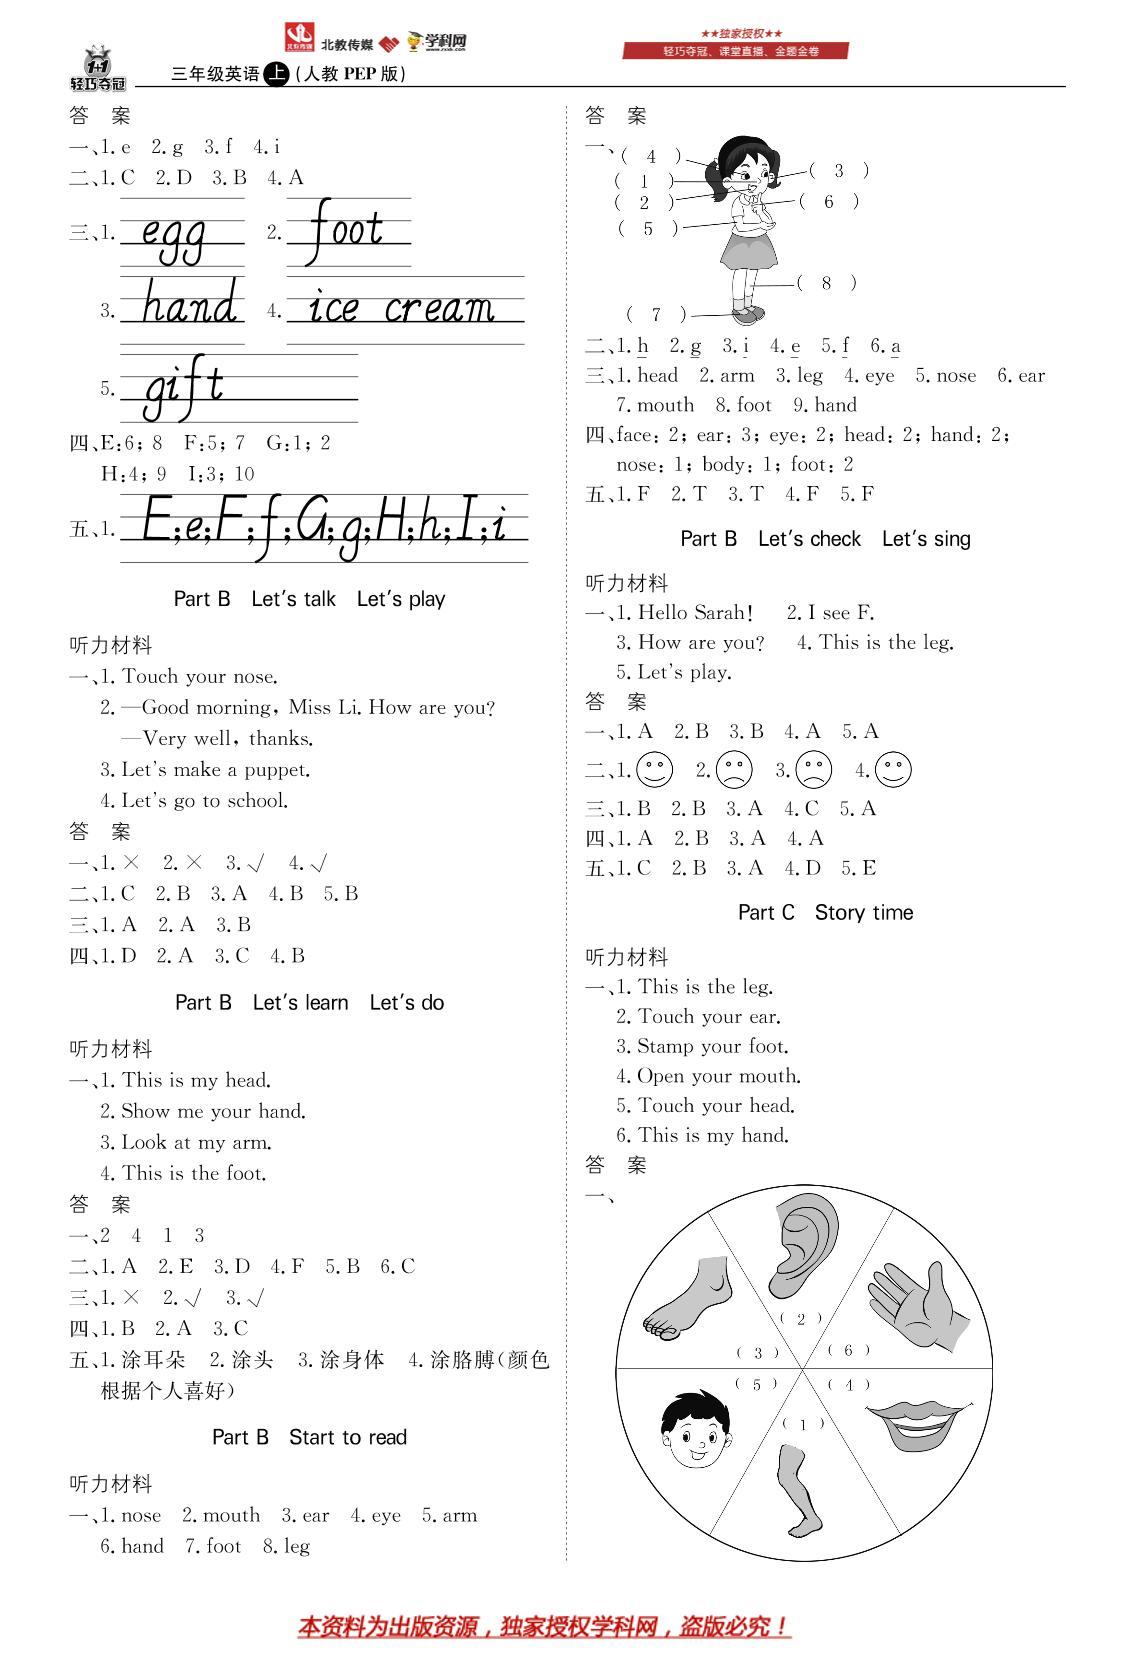 北教传媒
学科网
www.zxxk.com
★★独家授权★★
轻巧夺冠、课堂直播、金题金卷
1+1
轻巧夺冠
三年级英语 上 (人教 PEP 版)
答 案
一、1. e 2. g 3. f 4. i
二、1. C 2. D 3. B 4. A
三、1. egg 2. foot
3. hand 4. ice cream
5. gift
四、E:6; 8 F:5; 7 G:1; 2
H:4; 9 I:3; 10
五、1. E;e;F;f;G;g;H;h;I;i
Part B Let's talk Let's play
听力材料
一、1. Touch your nose.
2. —Good morning, Miss Li. How are you?
—Very well, thanks.
3. Let's make a puppet.
4. Let's go to school.
答 案
一、1. × 2. × 3. √ 4. √
二、1. C 2. B 3. A 4. B 5. B
三、1. A 2. A 3. B
四、1. D 2. A 3. C 4. B
Part B Let's learn Let's do
听力材料
一、1. This is my head.
2. Show me your hand.
3. Look at my arm.
4. This is the foot.
答 案
一、2 4 1 3
二、1. A 2. E 3. D 4. F 5. B 6. C
三、1. × 2. √ 3. √
四、1. B 2. A 3. C
五、1. 涂耳朵 2. 涂头 3. 涂身体 4. 涂胳膊(颜色
根据个人喜好)
Part B Start to read
听力材料
一、1. nose 2. mouth 3. ear 4. eye 5. arm
6. hand 7. foot 8. leg
答 案
一、
( 4 )
( 3 )
( 1 )
( 2 )
( 6 )
( 5 )
( 8 )
( 7 )
二、1. h 2. g 3. i 4. e 5. f 6. a
三、1. head 2. arm 3. leg 4. eye 5. nose 6. ear
7. mouth 8. foot 9. hand
四、face: 2; ear: 3; eye: 2; head: 2; hand: 2;
nose: 1; body: 1; foot: 2
五、1. F 2. T 3. T 4. F 5. F
Part B Let's check Let's sing
听力材料
一、1. Hello Sarah! 2. I see F.
3. How are you? 4. This is the leg.
5. Let's play.
答 案
一、1. A 2. B 3. B 4. A 5. A
二、1. 2. 3. 4.
三、1. B 2. B 3. A 4. C 5. A
四、1. A 2. B 3. A 4. A
五、1. C 2. B 3. A 4. D 5. E
Part C Story time
听力材料
一、1. This is the leg.
2. Touch your ear.
3. Stamp your foot.
4. Open your mouth.
5. Touch your head.
6. This is my hand.
答 案
一、
( 2 )
( 3 ) ( 6 )
( 5 ) ( 4 )
( 1 )
本资料为出版资源，独家授权学科网，盗版必究！